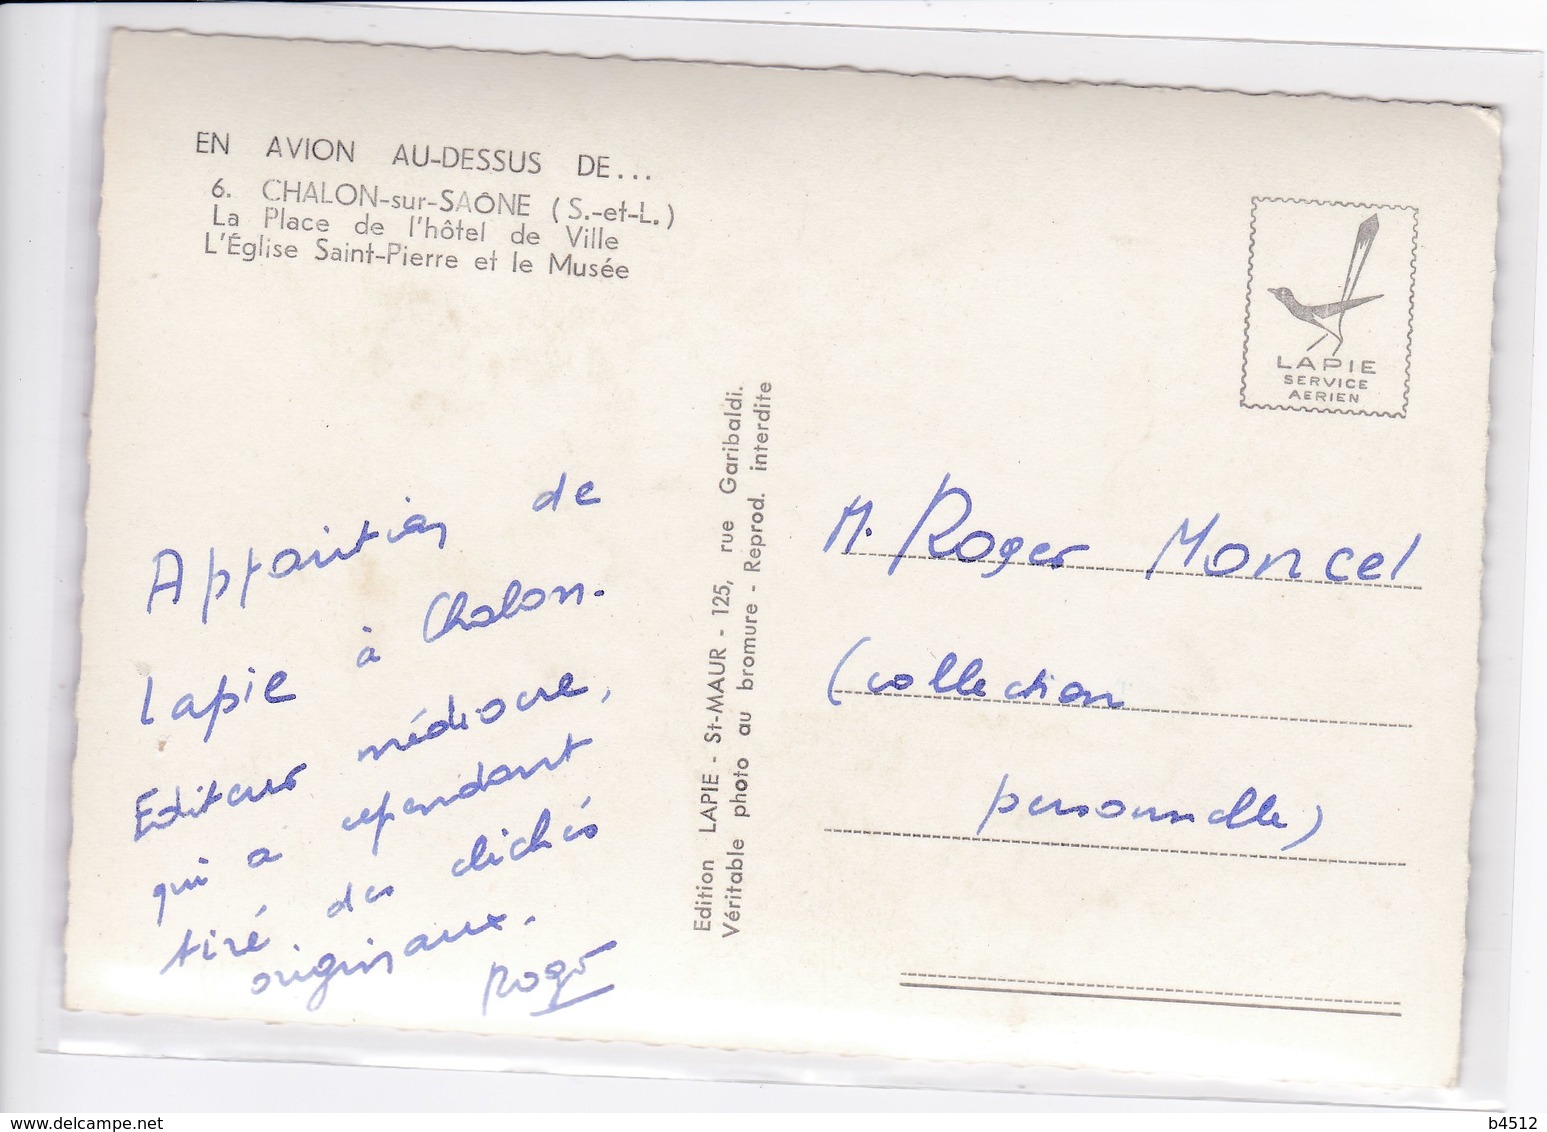 EN AVION AU-DESSUS DE...
6. CHALON-sur-SAÔNE (S.-et-L.)
La Place de l'hôtel de Ville
L'Église Saint-Pierre et le Musée
LAPIE
SERVICE
AERIEN
Apparition de
Lapie à Chalon.
Editeur médiocre,
qui a cependant
tiré des clichés
originaux.
Roger
Edition LAPIE - St-MAUR - 125, rue Garibaldi.
Véritable photo au bromure - Reprod. interdite
M. Roger Moncel
(collection
personnelle)
www.delcampe.net
b4512